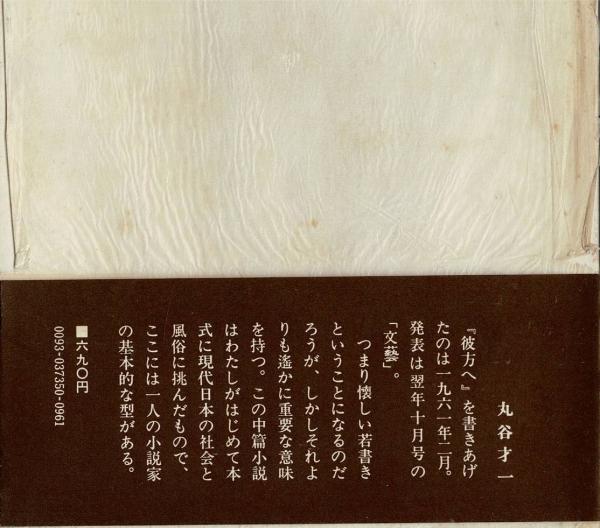 丸谷才一
『彼方へ』を書きあげ
たのは一九六一年二月。
発表は翌年十月号の
「文藝」。
つまり懐しい若書き
ということになるのだ
ろうが、しかしそれよ
りも遙かに重要な意味
を持つ。この中篇小説
はわたしがはじめて本
式に現代日本の社会と
風俗に挑んだもので、
ここには一人の小説家
の基本的な型がある。
■六九〇円
0093-037350-0961